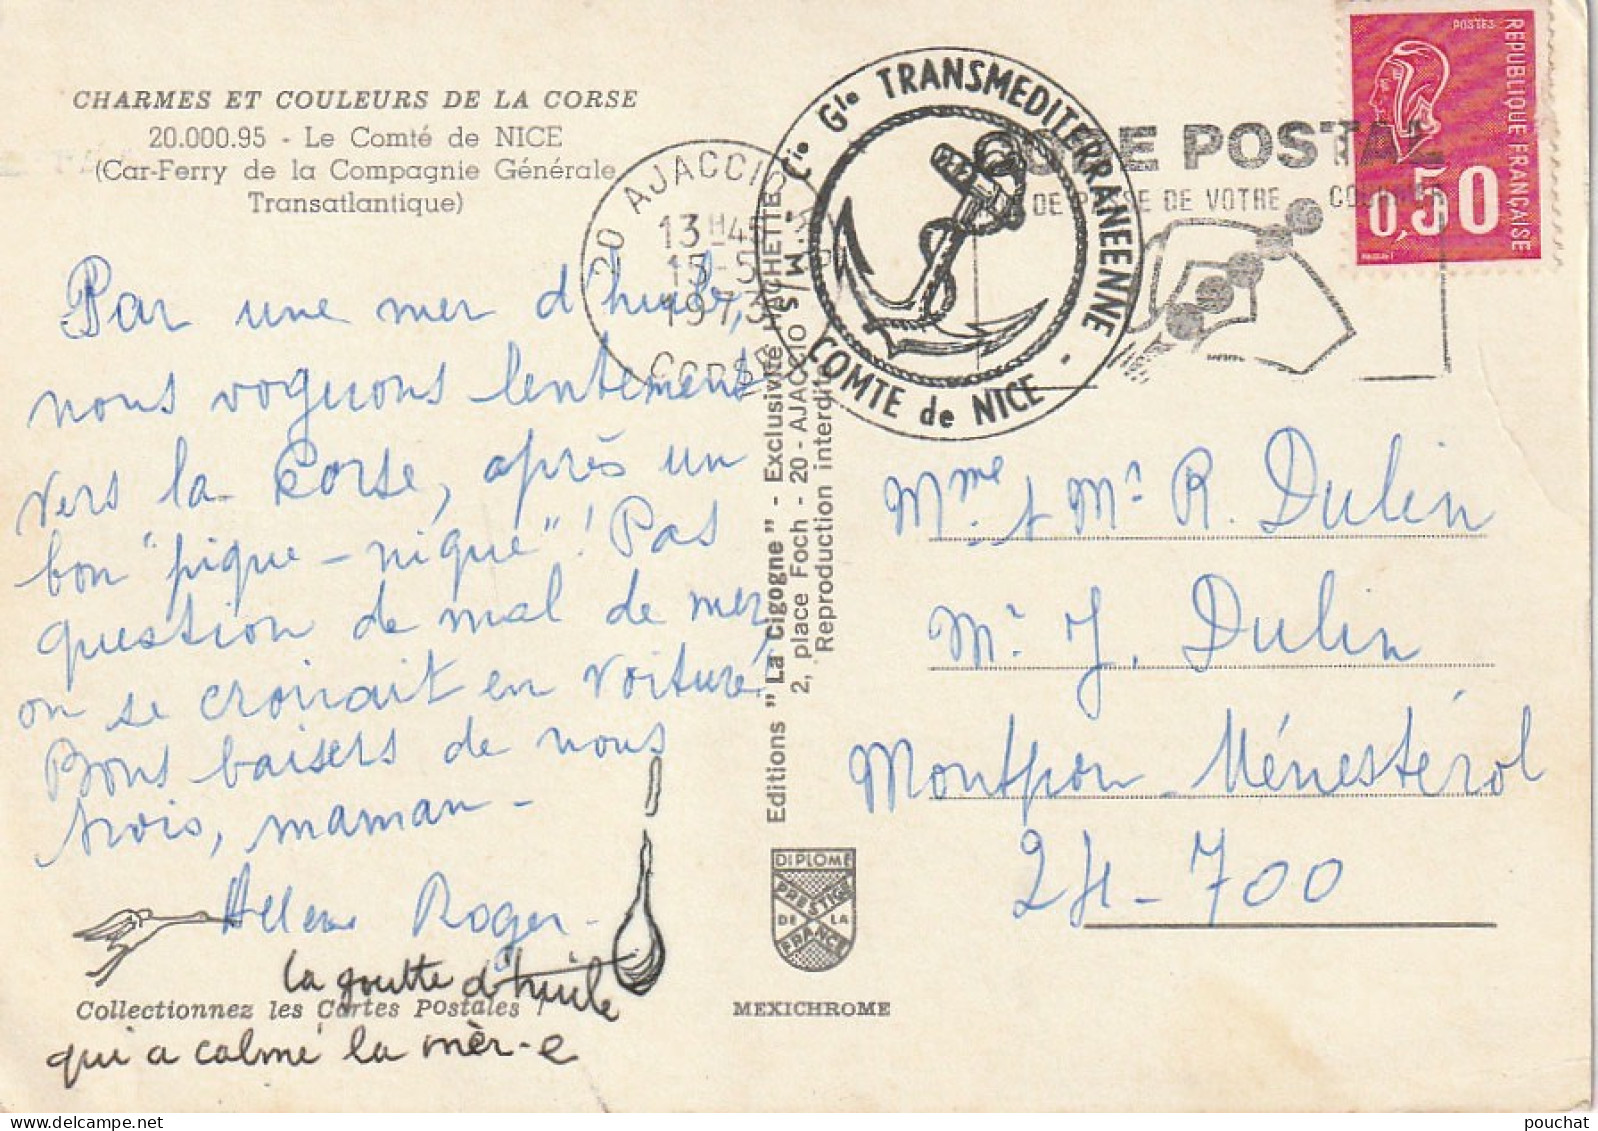 CHARMES ET COULEURS DE LA CORSE
20.000.95 - Le Comté de NICE
(Car-Ferry de la Compagnie Générale
Transatlantique)
Par une mer d'huile,
nous voguons lentement
vers la Corse, après un
bon "pique-nique"! Pas
question de mal de mer,
on se croirait en voiture.
Bons baisers de nous
trois, maman -
Hélène Roger -
la goutte d'huile
qui a calmé la mèr-e
Collectionnez les Cartes Postales !
20 AJACCIO
13H45
1973
CORSE
Cie Gle TRANSMEDITERRANEENNE - M/S COMTE de NICE -
CODE POSTAL
DE VOTRE
REPUBLIQUE FRANÇAISE
POSTES
0,50
Editions "La Cigogne" - Exclusivité HACHETTE
2, place Foch - 20 - AJACCIO
Reproduction interdite
DIPLOME
PRESTIGE
DE LA
FRANCE
MEXICHROME
Mme & Mr R. Dulin
Mr J. Dulin
Montpon-Ménestérol
24-700
pouchat